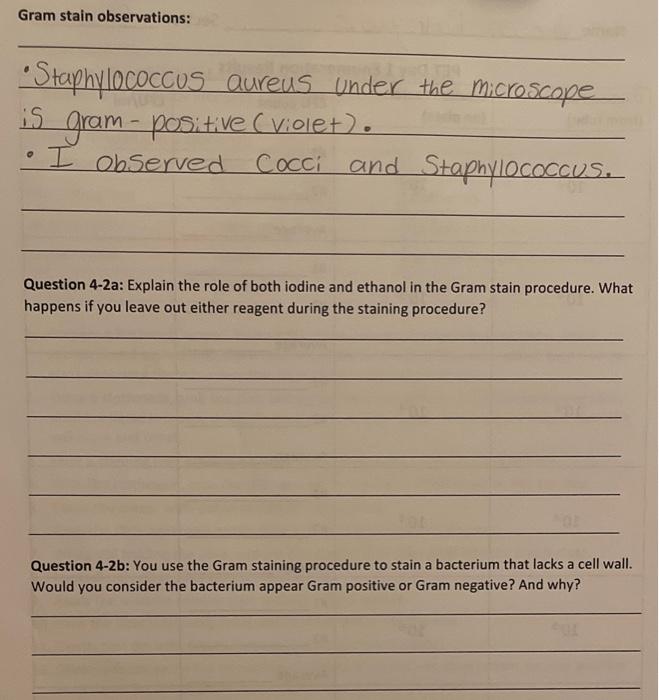 Gram stain observations:
• Staphylococcus aureus under the microscope
is gram-positive (violet).
• I observed Cocci and Staphylococcus.
Question 4-2a: Explain the role of both iodine and ethanol in the Gram stain procedure. What
happens if you leave out either reagent during the staining procedure?
Question 4-2b: You use the Gram staining procedure to stain a bacterium that lacks a cell wall.
Would you consider the bacterium appear Gram positive or Gram negative? And why?